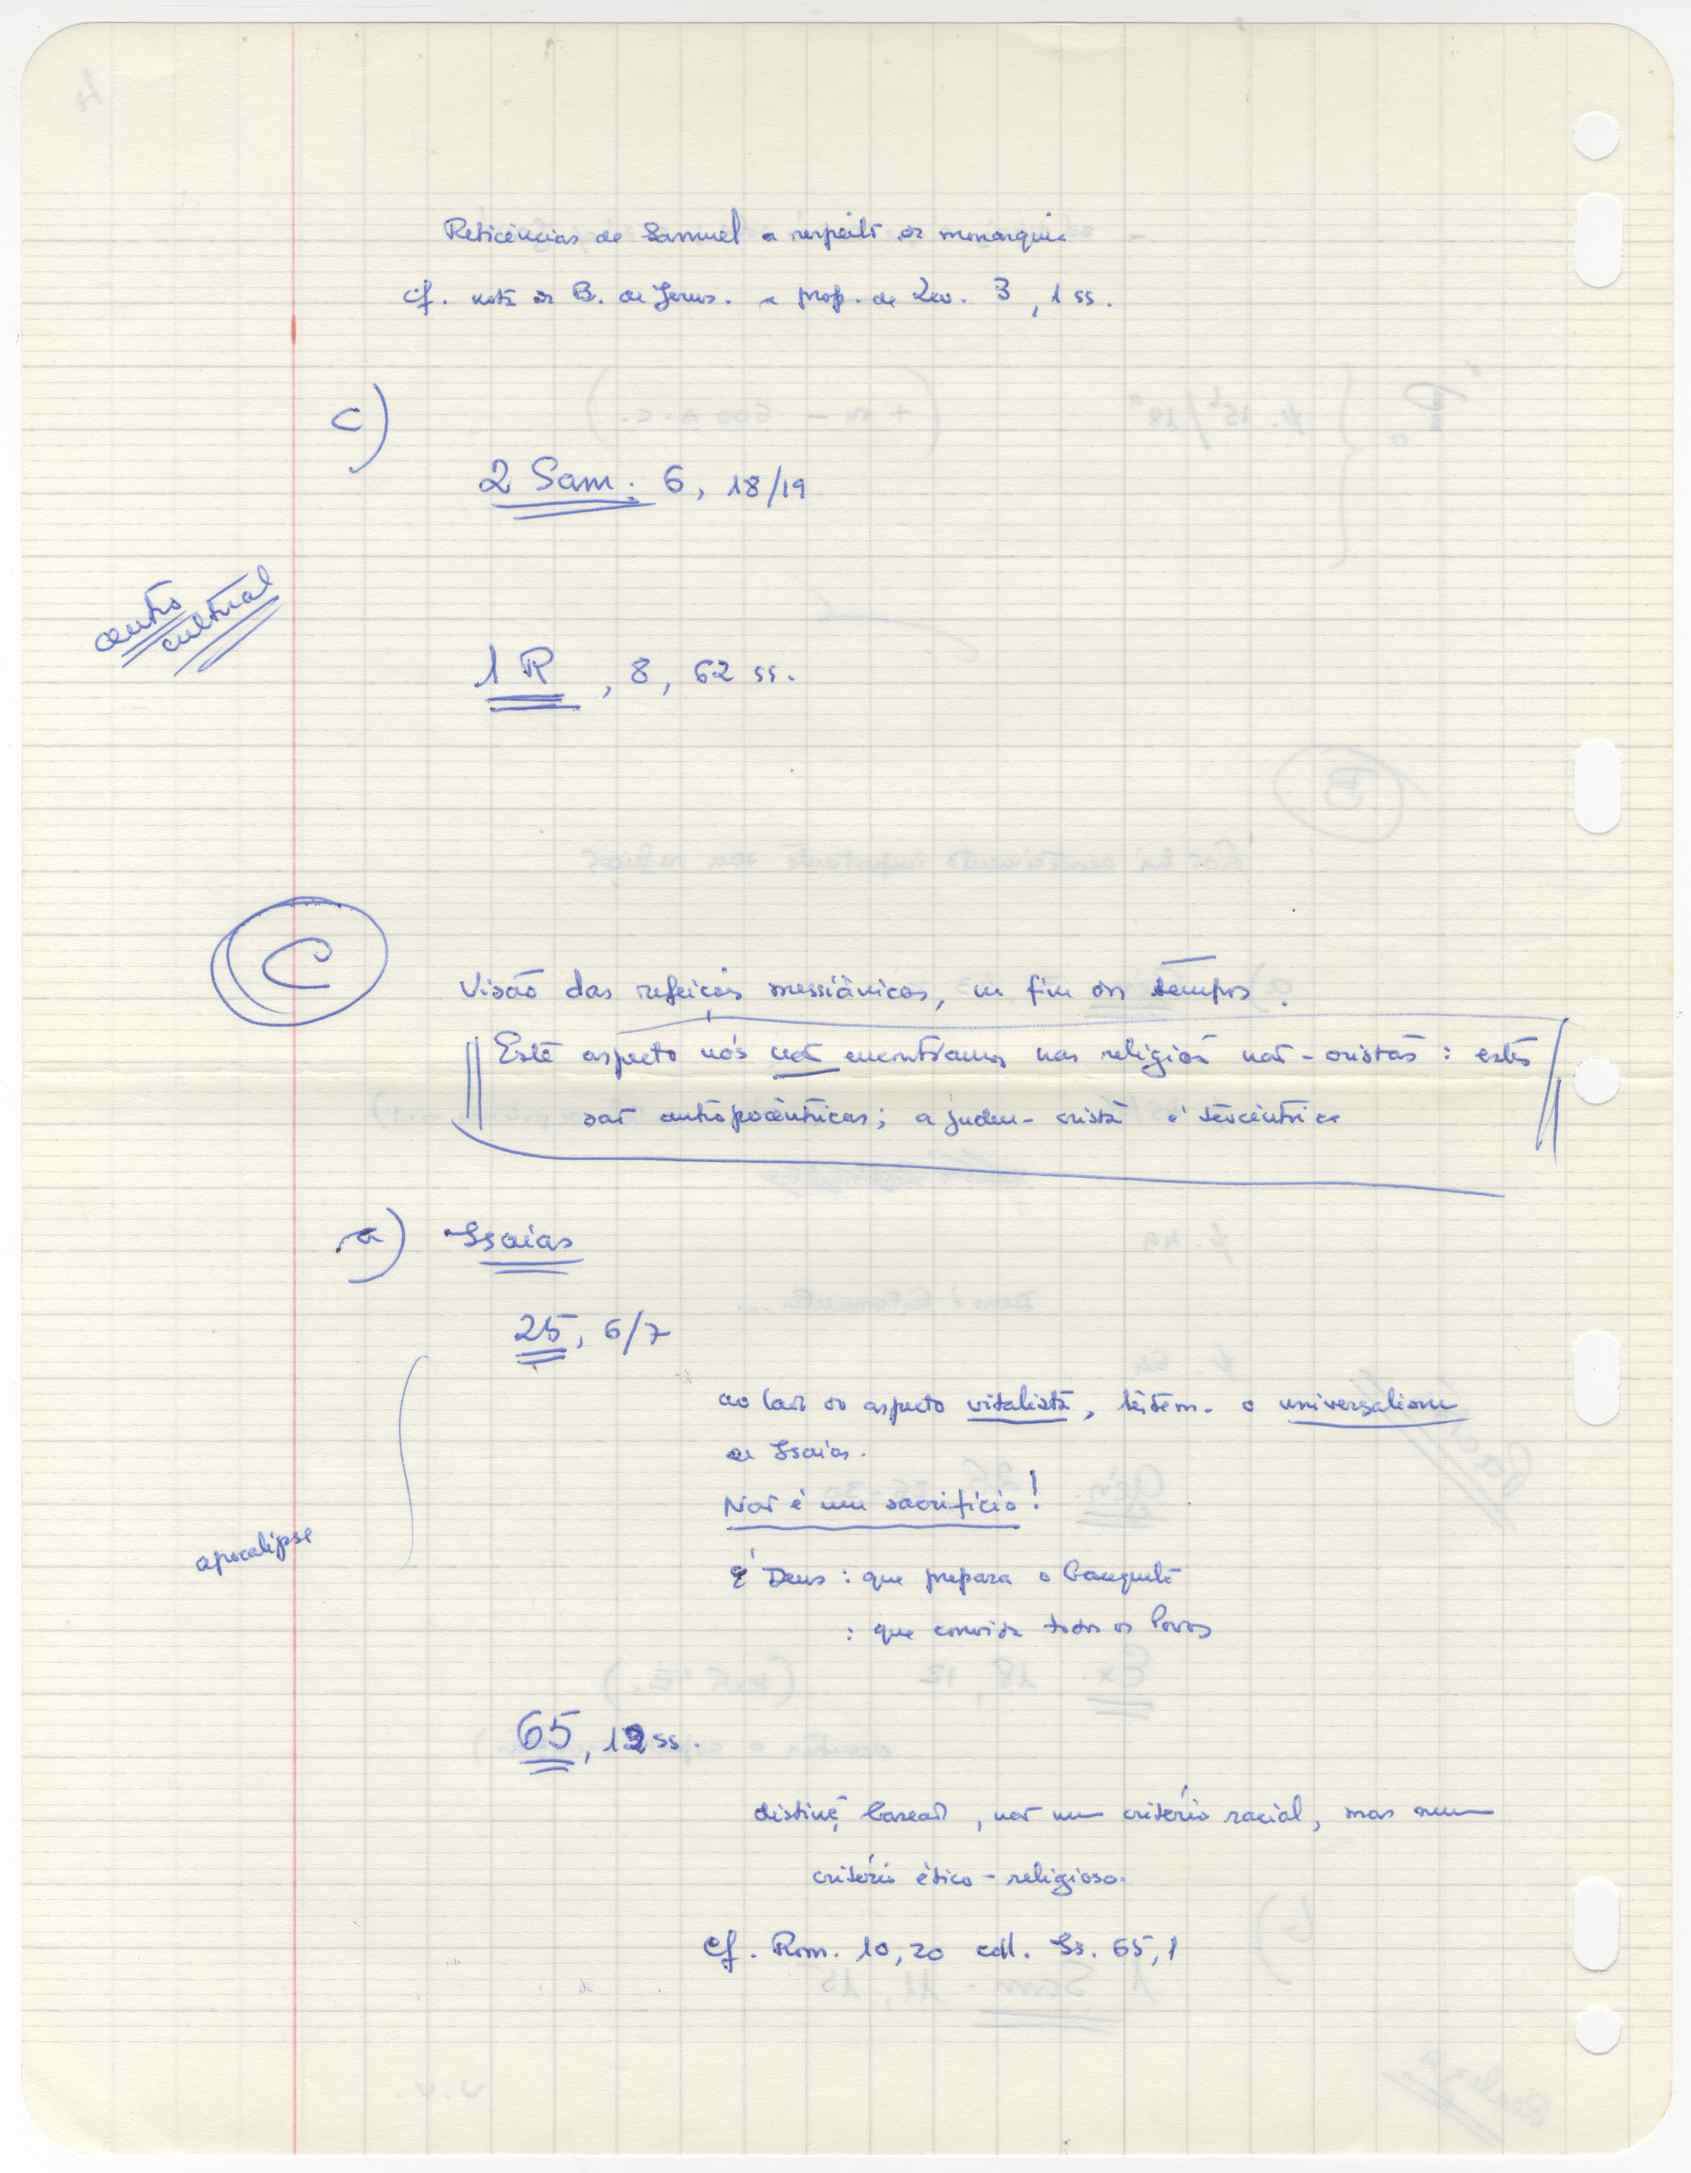 Reticências de Samuel a respeito da monarquia
cf. nota da B. de Jerus. a prop. de Lev. 3, 1 ss.
c)
2 Sam. 6, 18/19
centro
cultual
1 R, 8, 62 ss.
C
Visão das refeições messiânicas, no fim dos tempos.
Este aspecto nós não encontramos nas religiões não-cristãs: estas
são antropocêntricas; a judeu-cristã é teocêntrica
a) Isaías
25, 6/7
ao lado do aspecto vitalista, têstem. o universalismo
de Isaías.
Não é um sacrifício!
É Deus: que prepara o banquete
: que convida todos os Povos
apocalipse
65, 12 ss.
distinç. baseada, não num critério racial, mas num
critério ético-religioso.
cf. Rom. 10, 20 coll. Is. 65, 1